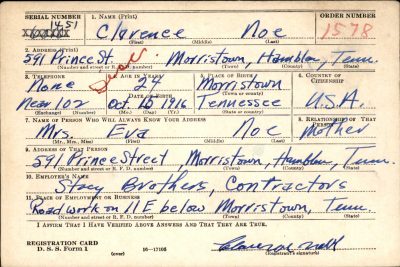 SERIAL NUMBER 1. NAME (Print) ORDER NUMBER
1451 Clarence Noe 1578
(First) (Middle) (Last)
2. ADDRESS (Print)
591 Prince St. Morristown, Hamblen, Tenn.
(Number and street or R. F. D. number) (Town) (County) (State)
3. TELEPHONE 4. AGE IN YEARS 5. PLACE OF BIRTH 6. COUNTRY OF CITIZENSHIP
None 24 Morristown
DATE OF BIRTH (Town or county)
Near 102 Oct. 16 1916 Tennessee U.S.A.
(Exchange) (Number) (Mo.) (Day) (Yr.) (State or country)
7. NAME OF PERSON WHO WILL ALWAYS KNOW YOUR ADDRESS 8. RELATIONSHIP OF THAT PERSON
Mrs. Eva Noe Mother
(Mr., Mrs., Miss) (First) (Middle) (Last)
9. ADDRESS OF THAT PERSON
591 Prince Street, Morristown, Hamblen, Tenn.
(Number and street or R. F. D. number) (Town) (County) (State)
10. EMPLOYER'S NAME
Stacy Brothers, Contractors
11. PLACE OF EMPLOYMENT OR BUSINESS
Road work on 11E below Morristown, Tenn.
(Number and street or R. F. D. number) (Town) (County) (State)
I AFFIRM THAT I HAVE VERIFIED ABOVE ANSWERS AND THAT THEY ARE TRUE.
REGISTRATION CARD
D. S. S. Form 1 (over) 16—17105
(Registrant's signature)